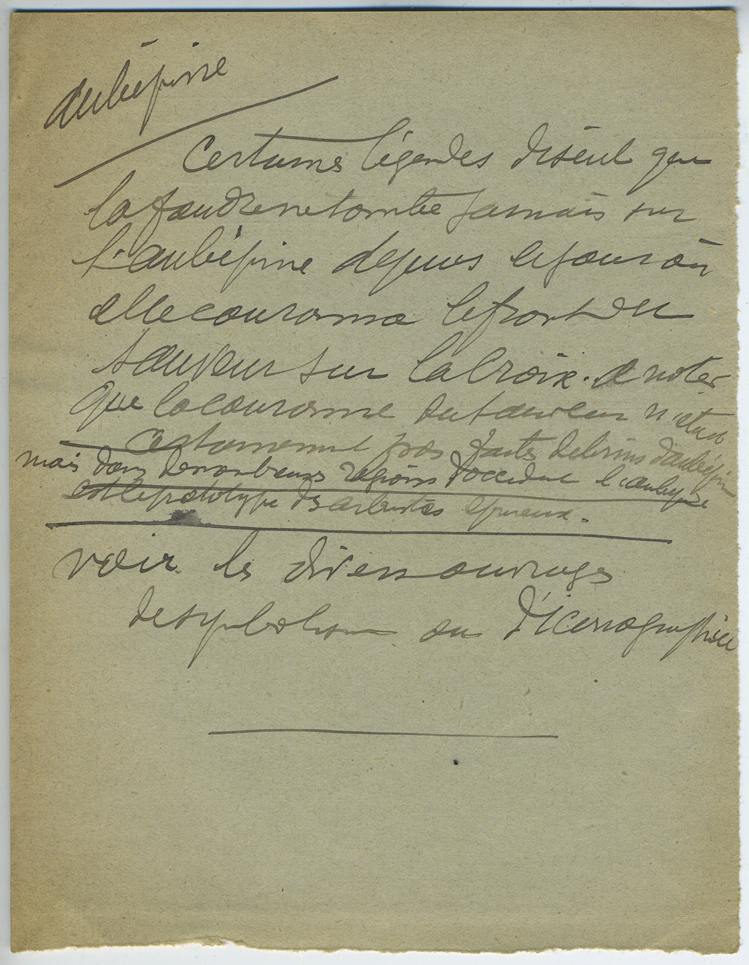 aubépine
Certaines légendes disent que
la foudre ne tombe jamais sur
l'aubépine depuis le jour où
elle couronna le front du
Sauveur sur la Croix. A noter
que la couronne du Sauveur n'était
certainement pas faite de brins d'aubépine
mais dans de nombreuses régions d'occident l'aubépine
est le prototype des arbustes épineux.
voir les divers ouvrages
de symbolisme ou d'iconographie